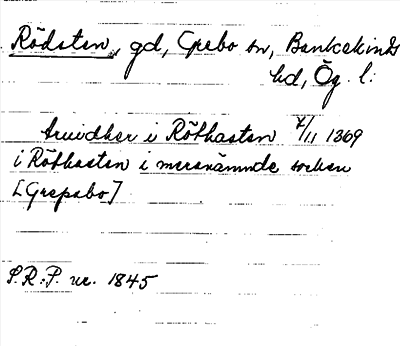 Rödsten, gd, Grebo sn, Bankekinds
hd, Ög. l:
Arvidher i Röthasten 7/11 1369
i Röthasten i mersnämnde socken
[Grepabo]
S.R.P. nr. 1845